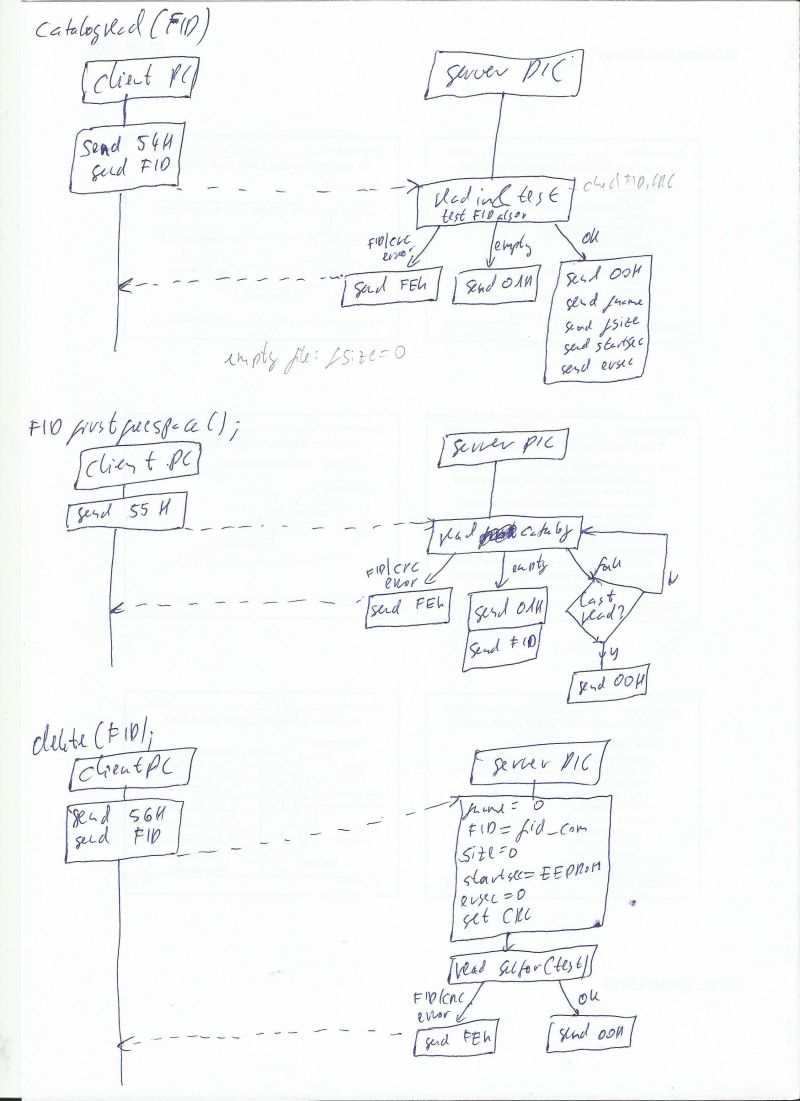 catalogread (FID)
client PC
server PIC
send 54H
send FID
check FID, CRC
test FID also
FID/CRC
error
empty
OK
send FEH
send 01H
send 00H
send fname
send fsize
send startsec
send evsec
empty file: fsize=0
FID firstfreespace();
client PC
server PIC
send 55H
read catalog
FID/CRC
error
empty
full
send FEH
send 01H
send FID
last
read?
N
y
send 00H
delete (FID);
client PC
server PIC
send 56H
send FID
fname = 0
FID = fid_com
size=0
startsec=EEPROM
evsec=0
set CRC
read (test)
FID/CRC
error
OK
send FEH
send 00H